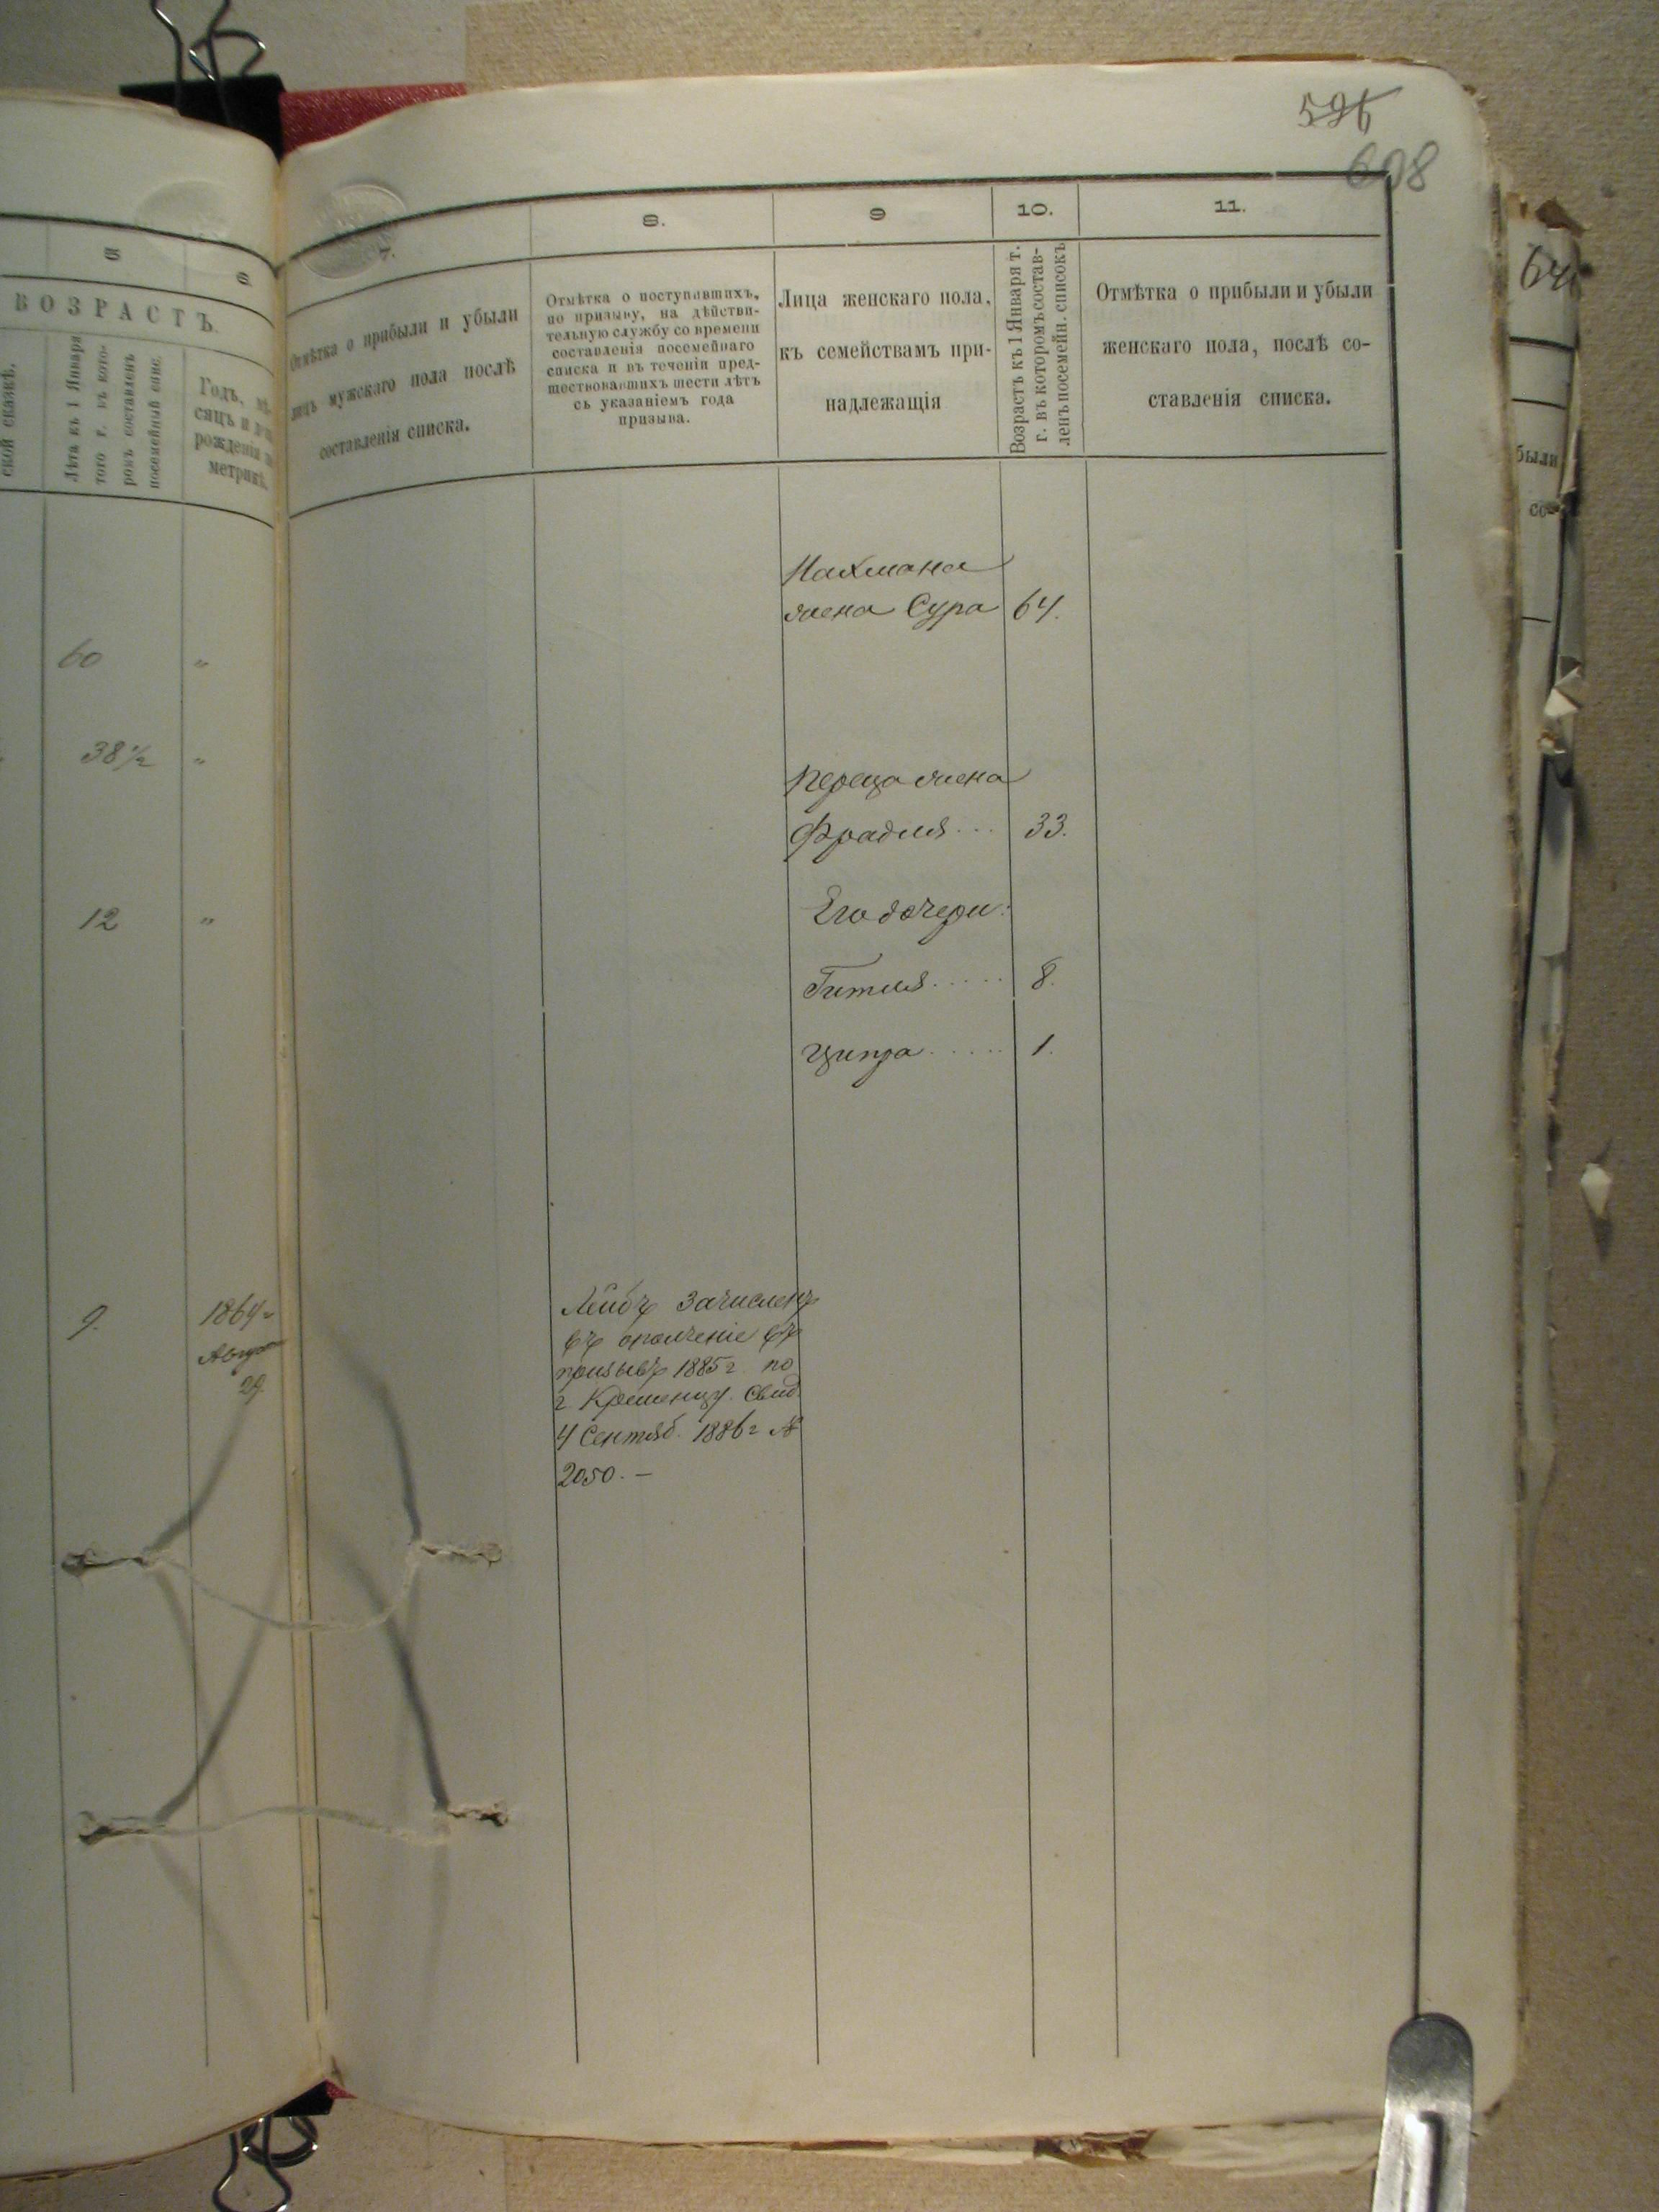 526
608
64
5
6.
ВОЗРАСТЪ.
ской сказкѣ.
Лѣта къ 1 Января
того г. въ кото-
ромъ составленъ
посемейный спис.
Годъ, мѣ-
сяцъ и
рожденія
метрикѣ.
60 "
38½ "
12 "
9.
1864 г
Август
29
7.
8.
9
10.
11.
Отмѣтка о прибыли и убыли
лицъ мужскаго пола послѣ
составленія списка.
Отмѣтка о поступившихъ,
по призыву, на дѣйстви-
тельную службу со времени
составленія посемейнаго
списка и въ теченіи пред-
шествовавшихъ шести лѣтъ
съ указаніемъ года
призыва.
Лица женскаго пола,
къ семействамъ при-
надлежащія
Возрастъ къ 1 Января т.
г. въ которомъ состав-
ленъ посемейн. списокъ
Отмѣтка о прибыли и убыли
женскаго пола, послѣ со-
ставленія списка.
Нахмана
жена Сура 64.
Переца жена
Фрадля... 33.
Его дочери:
Гитля..... 8.
Ципра..... 1.
Лейбъ зачисленъ
въ ополченіе въ
призывъ 1885 г. по
г. Кременцу. Свид.
4 Сентяб. 1886 г №
2050. —
были
со-